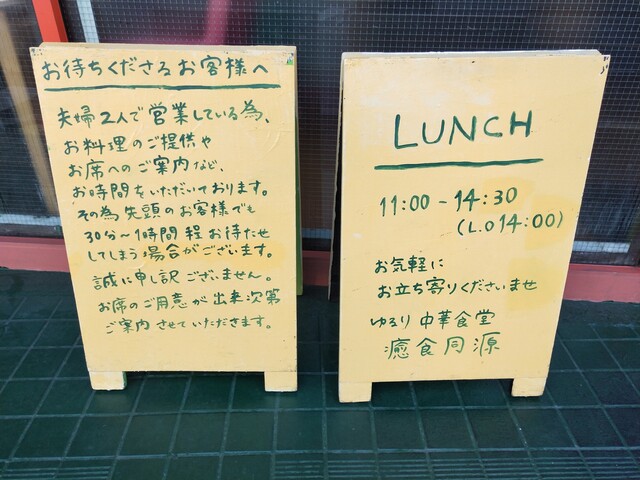 お待ちくださるお客様へ
夫婦2人で営業している為、
お料理のご提供や
お席へのご案内など、
お時間をいただいております。
その為先頭のお客様でも
30分~1時間程お待たせ
してしまう場合がございます。
誠に申し訳ございません。
お席のご用意が出来次第
ご案内させていただきます。
LUNCH
11:00-14:30
(L.O14:00)
お気軽に
お立ち寄りくださいませ
ゆるり中華食堂
癒食同源